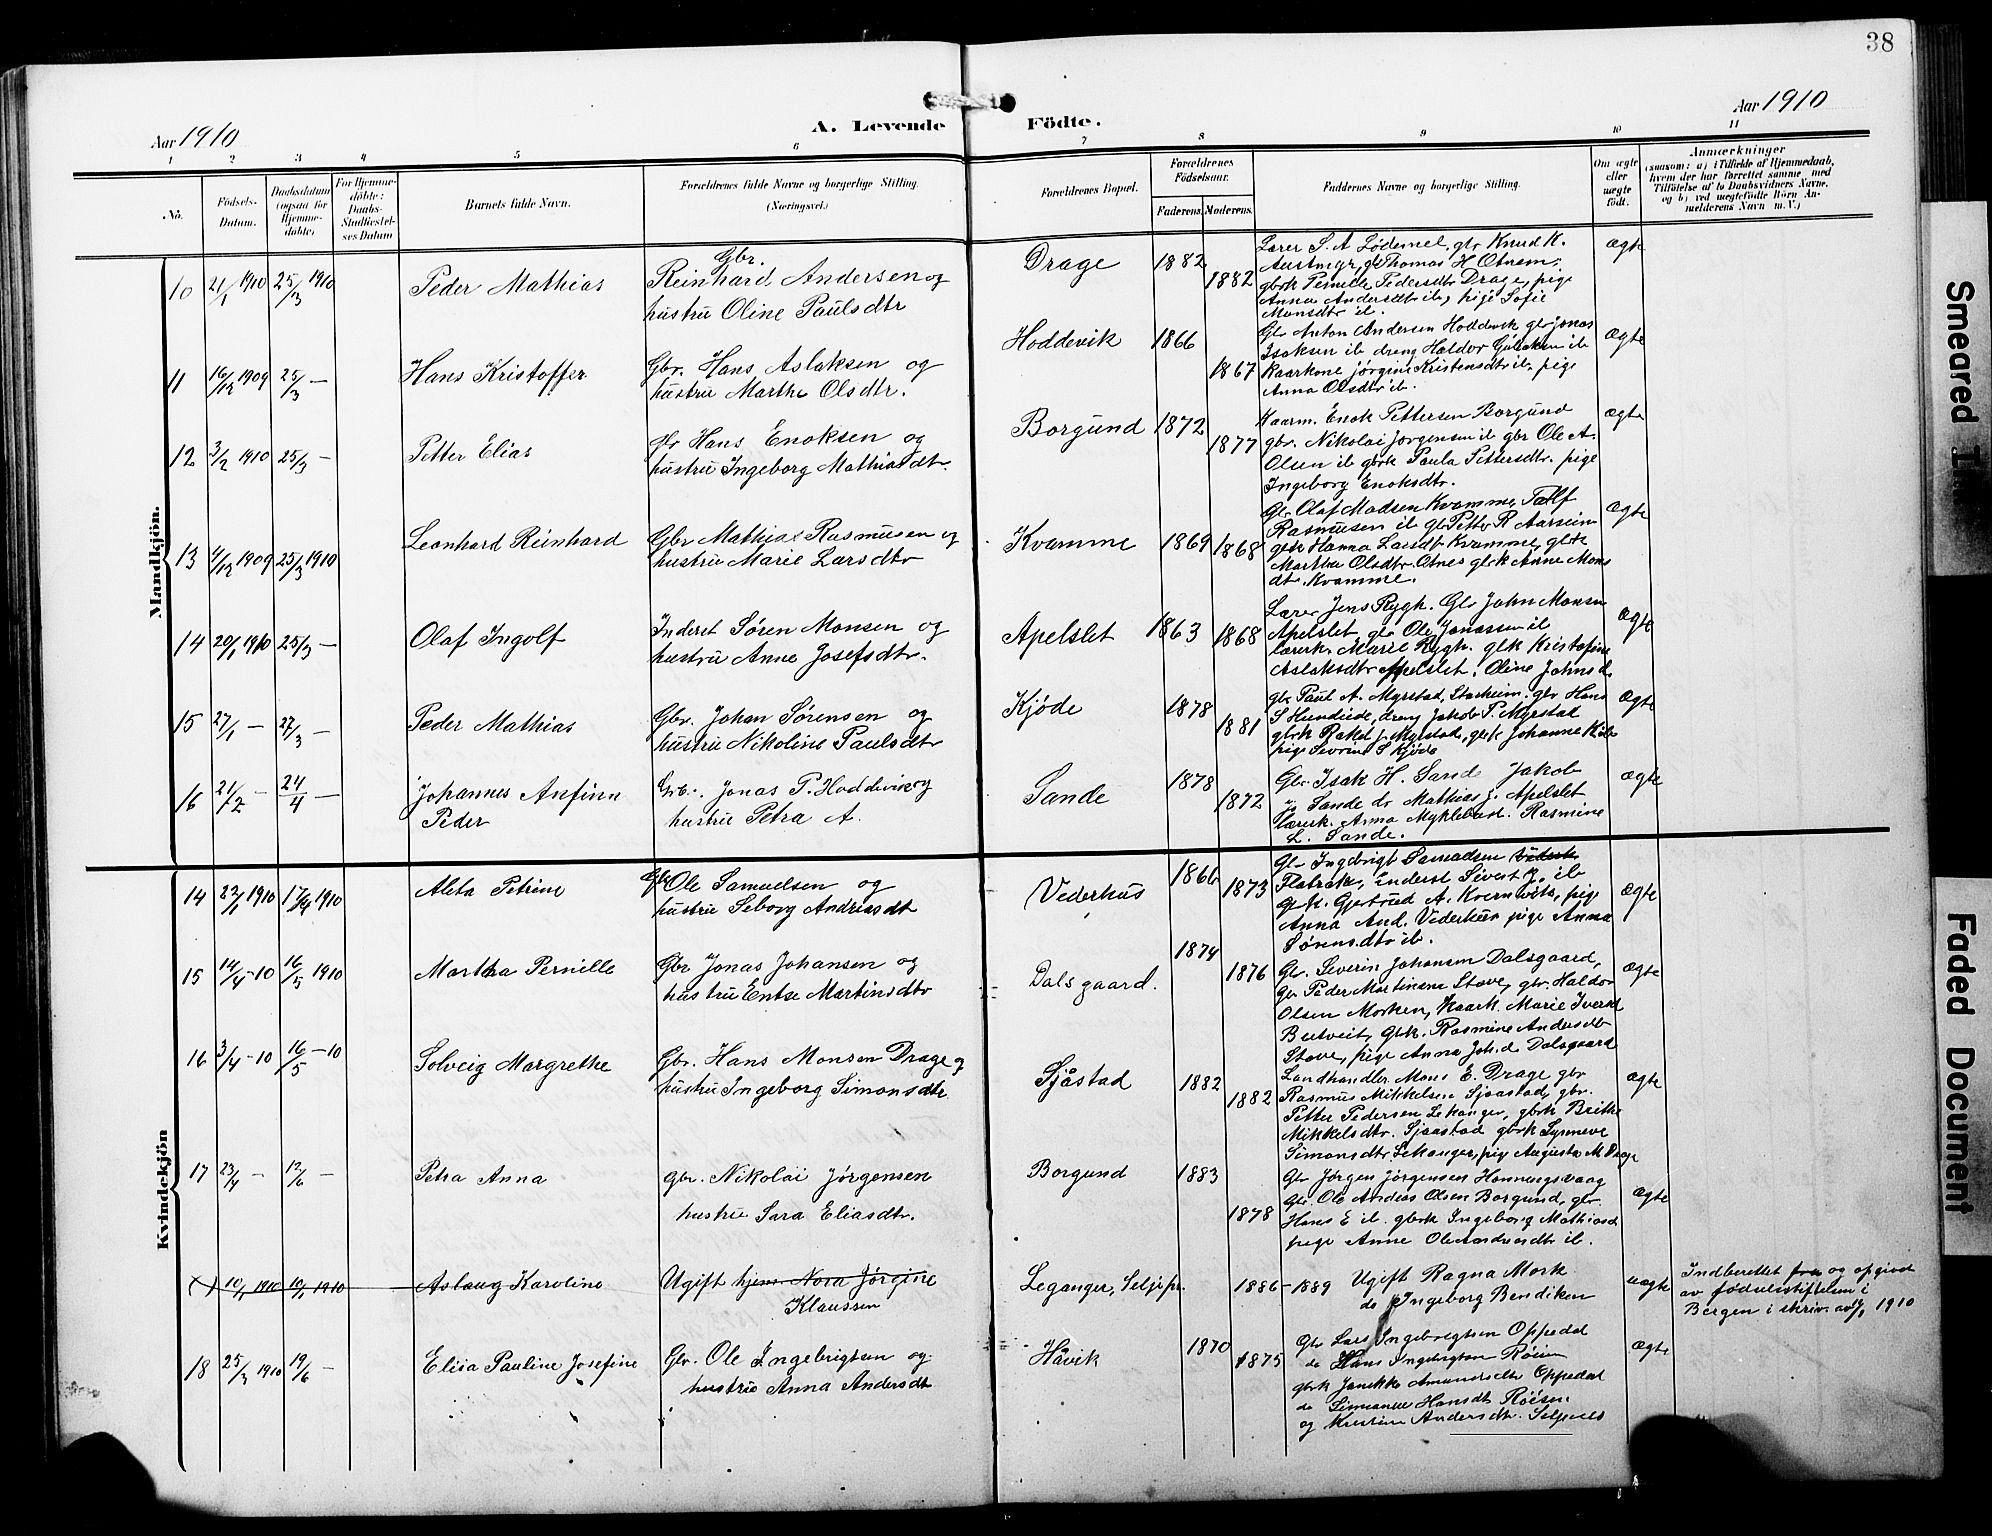 38
Aar 1910
A. Levende Födte.
Aar 1910
1 2 3 4 5 6 7 8 9 10 11
No.
Födsels-
Datum.
Daabsdatum
(ogsaa for
Hjemme-
döbte)
For Hjemme-
döbte:
Daabs-
Stadfæstel-
ses Datum
Barnets fulde Navn.
Forældrenes fulde Navne og borgerlige Stilling.
(Næringsvei.)
Forældrenes Bopæl.
Forældrenes
Födselsaar.
Faderens. Moderens.
Faddernes Navne og borgerlige Stilling.
Om ægte
eller
uægte
født.
Anmærkninger
(saasom: a) i Tilfælde af Hjemmedaab,
hvem der har forrettet samme, med
Tilföielse af to Daabsvidners Navne,
og b) ved uægtefödte Börn An-
melderens Navn m. V.)
Mandkjön.
10 21/1 1910 25/3 1910
Peder Mathias
Gbr.
Reinhard Andersen og
hustru Oline Paulsdtr
Drage 1882 1882
Lærer S. A Lødemel, gbr Knud K.
Austmyr, gbr Thomas H Otnem,
gbrk Pernille Pedersdtr Drage, pige
Anna Andersdtr ib, pige Sofie
Monsdtr ib.
ægte
11 16/12 1909 25/3 —
Hans Kristoffer
Gbr. Hans Aslaksen og
hustru Marthe Olsdtr.
Hoddevik 1866 1867
Gbr Anton Andersen Hoddevik gbr Jonas
Isaksen ib dreng Haldor ib
Kaarkone Jørgine Kristensdtr ib, pige
Anna Olsdtr ib.
ægte
12 3/2 1910 25/3 —
Petter Elias
gbr Hans Enoksen og
hustru Ingeborg Mathiasdtr.
Borgund 1872 1877
Kaarm. Enok Pettersen Borgund
gbr. Nikolai Jørgensen ib gbr Ole A.
Olsen ib gbrk Paula Pettersdtr. pige
Ingeborg Enoksdtr.
ægte
13 4/12 1909 25/3 1910
Leonhard Reinhard
Gbr Mathias Rasmusen og
hustru Marie Larsdtr
Kvamme 1869 1868
Gbr Olaf Madsen Kvamme
Rasmusen ib gbr Petter R Aarseim
gbrk Hanna Larsdtr Kvamme, gbrk
Marthe Olsdtr. Otnes gbrk Anne Mons
dtr. Kvamme.
ægte
14 20/1 1910 25/3 —
Olaf Ingolf
Inderst Søren Monsen og
hustru Anne Josefsdtr.
Apelslet 1863 1868
Lærer Jens Rygh. Gbr John Monsen
Apelslet, gbr Ole Jonassen ib
lærerk. Marie Rygh. gbk Kristofine
Aslaksdtr Apelslet. Oline Johns d.
ægte
15 27/1 — 27/3 —
Peder Mathias
Gbr. Johan Sørensen og
hustru Nikoline Paulsdtr
Kjøde 1878 1881
gbr Paul A. Myrstad, gbr Hans
S Hundeide, dreng Jakob P. Myrstad
gbrk Rakel J. Myrstad, gbrk Johanne
pige Sevrine S Kjøde
ægte
16 21/2 — 24/4 —
Johannes Anfinn
Peder
Grb. Jonas P. Hoddevik og
hustru Petra A.
Sande 1878 1872
Gbr Isak H. Sande Jakob
J. Sande do Mathias J. Apelslet
lærerk. Anna Myklebust. Rasmine
L. Sande.
ægte
Kvindekjön
14 22/1 1910 17/4 1910
Aleta Petrine
Gbr Ole Samuelsen og
hustru Seborg Andreasdt
Vederhus 1866 1873
Gbr Ingebrigt Samuelsen
Flatrak, Inderst Sivert J. ib
gbk. Gjertrud A. Kvernvik, pige
Anna And. Vederhus pige Anna
Sørensdtr ib.
ægte
15 14/4 -10 16/5 1910
Martha Pernille
Gbr Jonas Johansen og
hustru Entse Martinsdtr
Dalsgaard. 1874 1876
Gbr. Severin Johansen Dalsgaard,
Gbr Peder Martinsen Stave, gbr. Haldor
Olsen Morken, Kaark. Marie Iversd
gbk. Rasmine Andersdtr
Stave, pige Anna Joh.d. Dalsgaard
ægte
16 3/4 -10 16/5 -10
Solveig Margrethe
Gbr. Hans Monsen Drage og
hustru Ingeborg Simonsdtr.
Sjåstad 1882 1882
Landhandler Mons E. Drage gbr
Rasmus Mikkelsen Sjaastad, gbr.
Petter Pedersen Lekanger, gbrk Brithe
Mikkelsdtr. Sjaastad gbrk Synneve
Simonsdtr. Lekanger, pige Augusta M. Drage
ægte
17 23/4 — 12/6 —
Petra Anna
Gbr. Nikolai Jørgensen
hustru Sara Eliasdtr.
Borgund 1883 1878
Gbr Jørgen Jørgensen Honningsvaag
Gbr. Ole Andreas Olsen Borgund, gbr.
Hans E ib. gbrk Ingeborg Mathiasd
pige Anne OleAndreasdtr ib.
ægte
( ) 10/1 1910 19/1 1910
Aslaug Karoline
Ugift hjem. Nora Jørgine
Klaussen
Leganger, Selje pr. 1886 – 1889
Ugift Ragna Mork
do Ingeborg Bendiksen
uægte
Indberettet fra og opgivet
av fødselsstiftelsen i
Bergen i skriv. av 1910
18 25/3 1910 19/6 —
Elisa Pauline Josefine
Gbr. Ole Ingebrigtsen og
hustru Anna Andersdt
Håvik 1870 1875
Gbr Lars Ingebrigtsen Oppedal
do Hans Ingebrigtsen Røisen
gbrk Janikke Amundsdtr Oppedal
do Simianne Hansdt Røisen
og Kristine Andersdtr.
ægte
Smeared
Faded Document